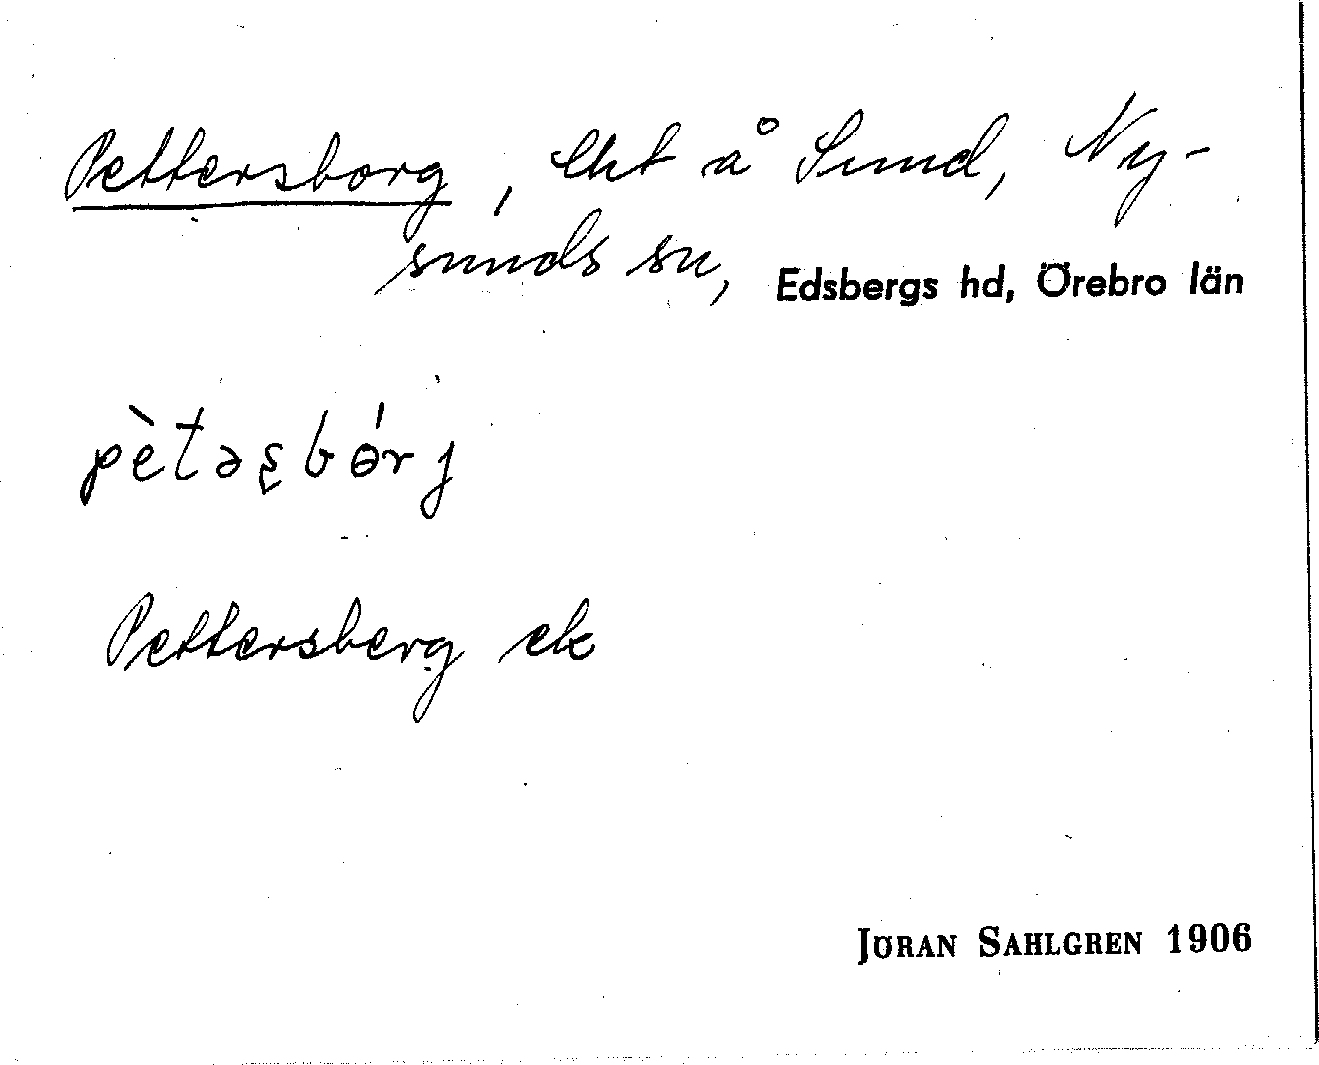 Pettersborg, lht å Sund, Ny-
sunds sn, Edsbergs hd, Örebro län
pètəʂbɵ́rj
Pettersberg ek
JÖRAN SAHLGREN 1906